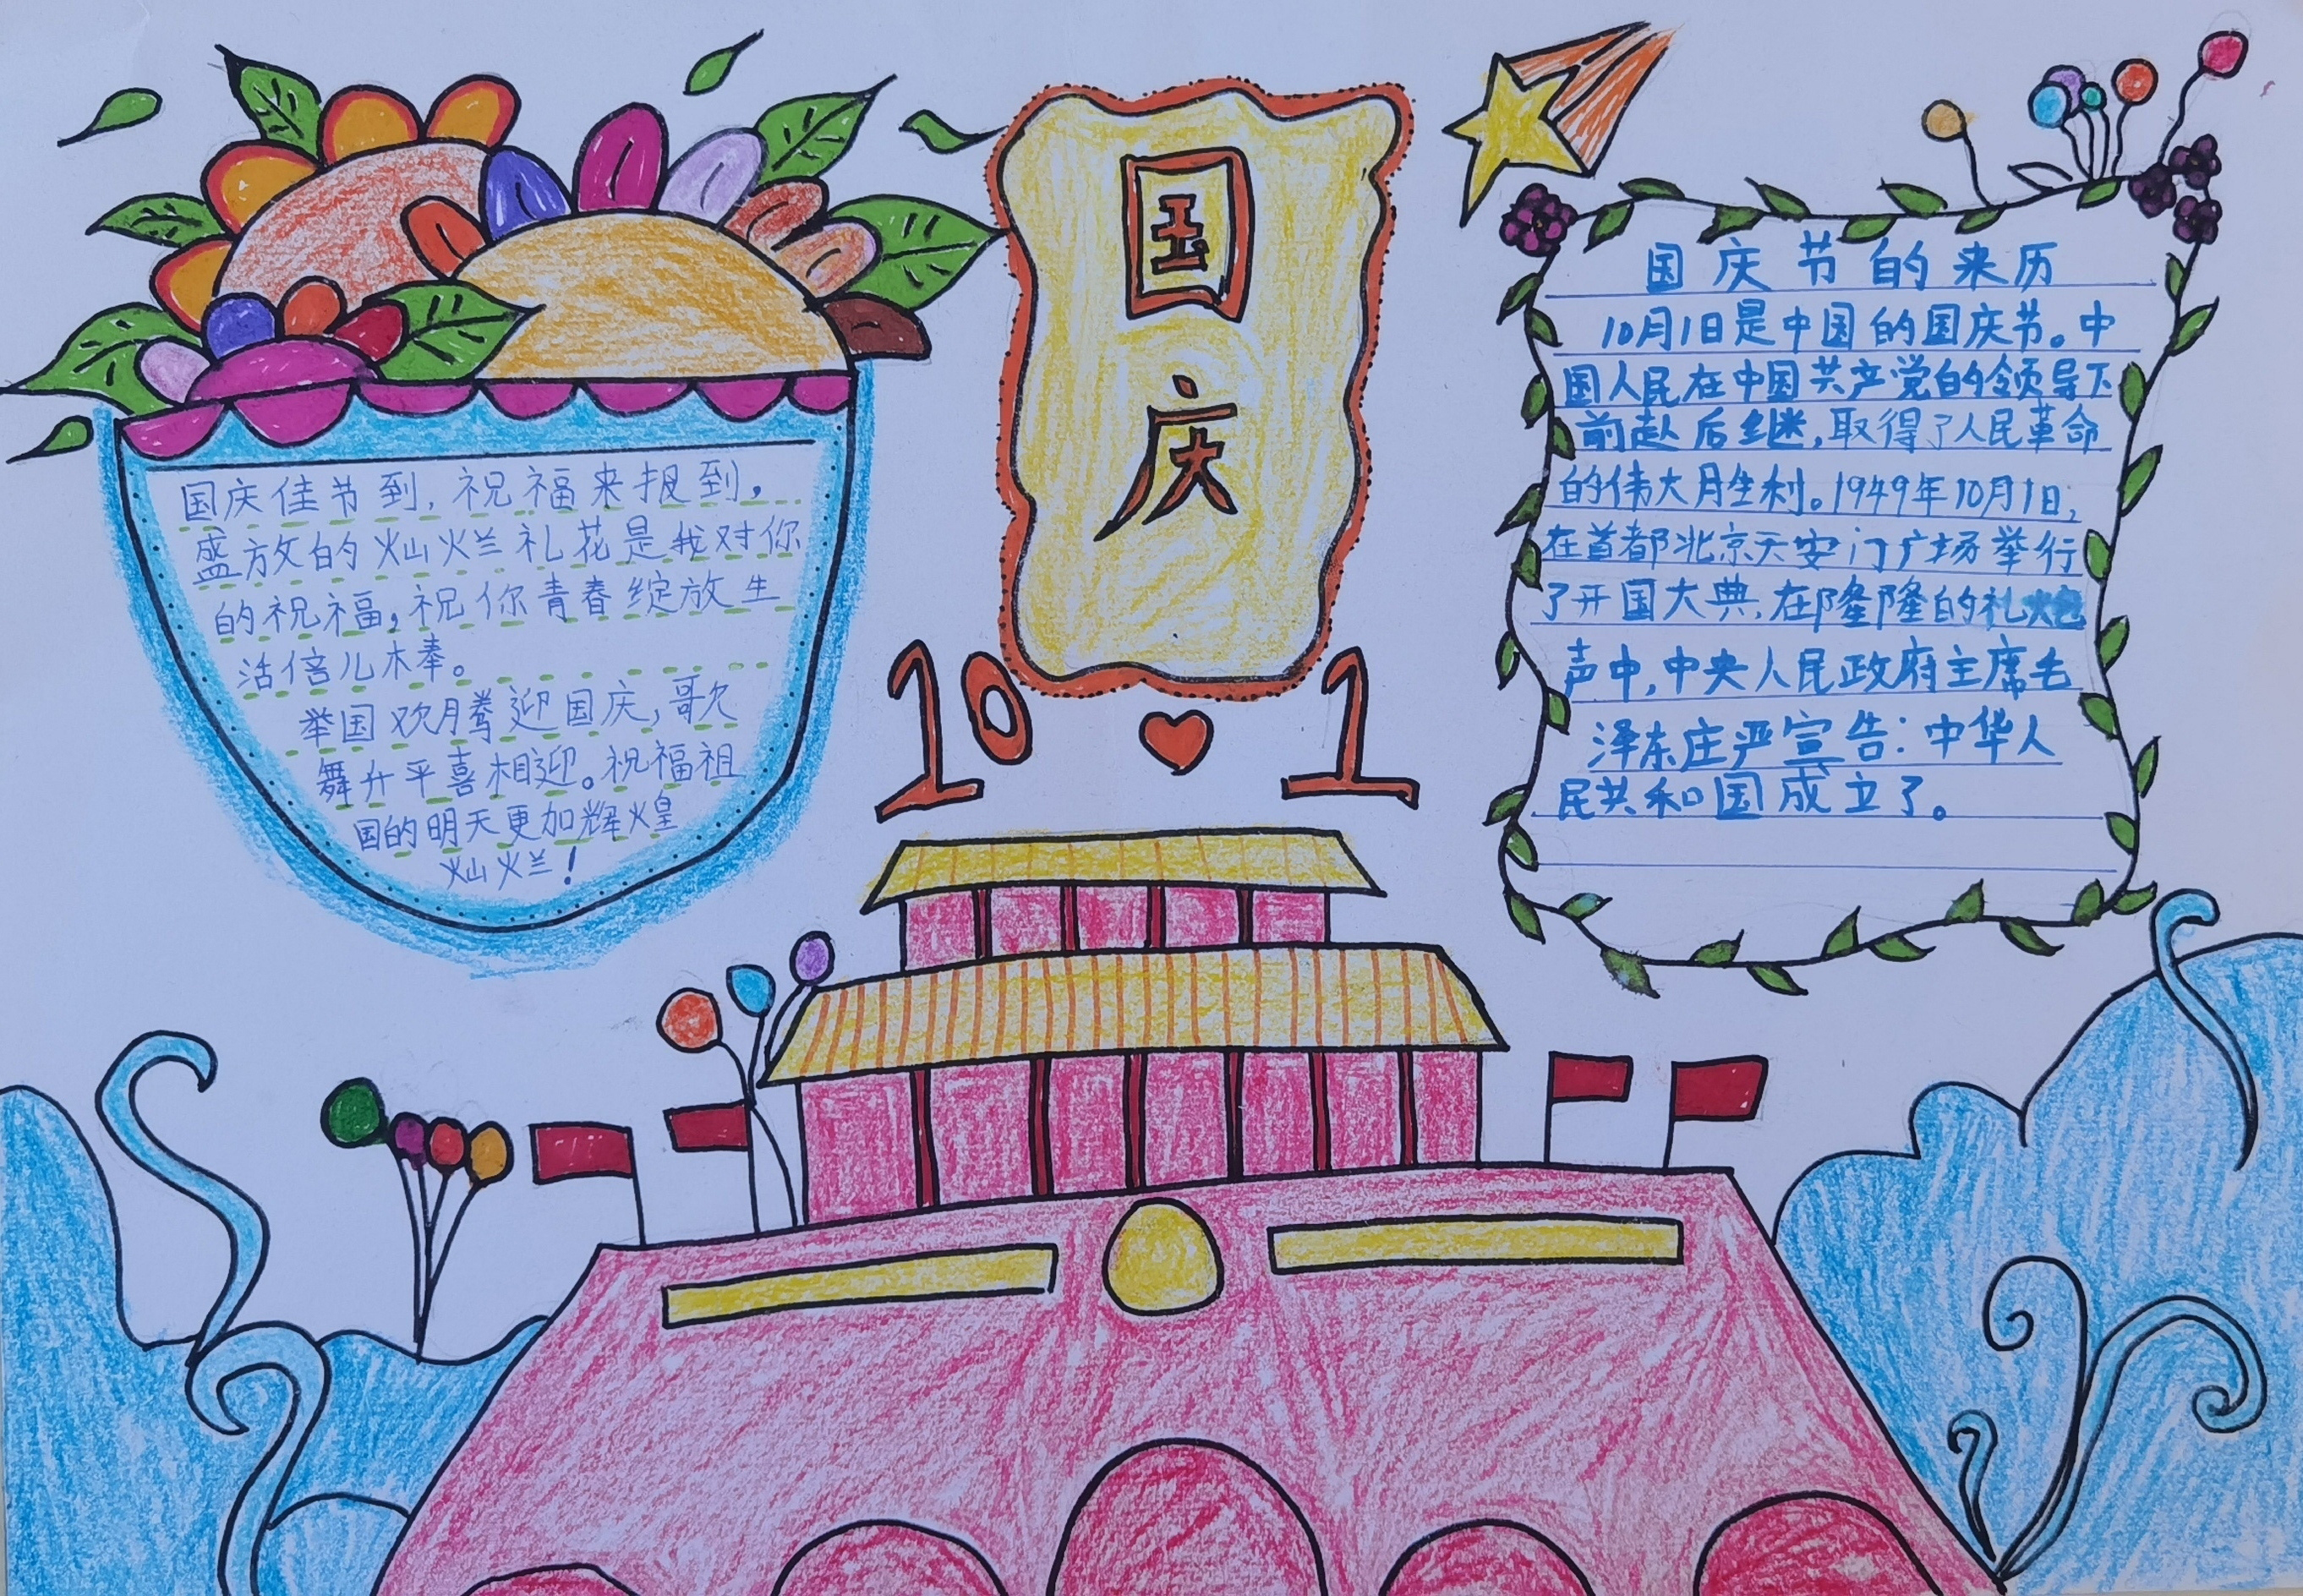 国庆佳节到，祝福来报到，
盛放的灿烂礼花是我对你
的祝福，祝你青春绽放生
活倍儿棒。
举国欢腾迎国庆，歌
舞升平喜相迎。祝福祖
国的明天更加辉煌
灿烂！
国
庆
10 1
国庆节的来历
10月1日是中国的国庆节。中
国人民在中国共产党的领导下
前赴后继，取得了人民革命
的伟大胜利。1949年10月1日，
在首都北京天安门广场举行
了开国大典，在隆隆的礼炮
声中，中央人民政府主席毛
泽东庄严宣告：中华人
民共和国成立了。